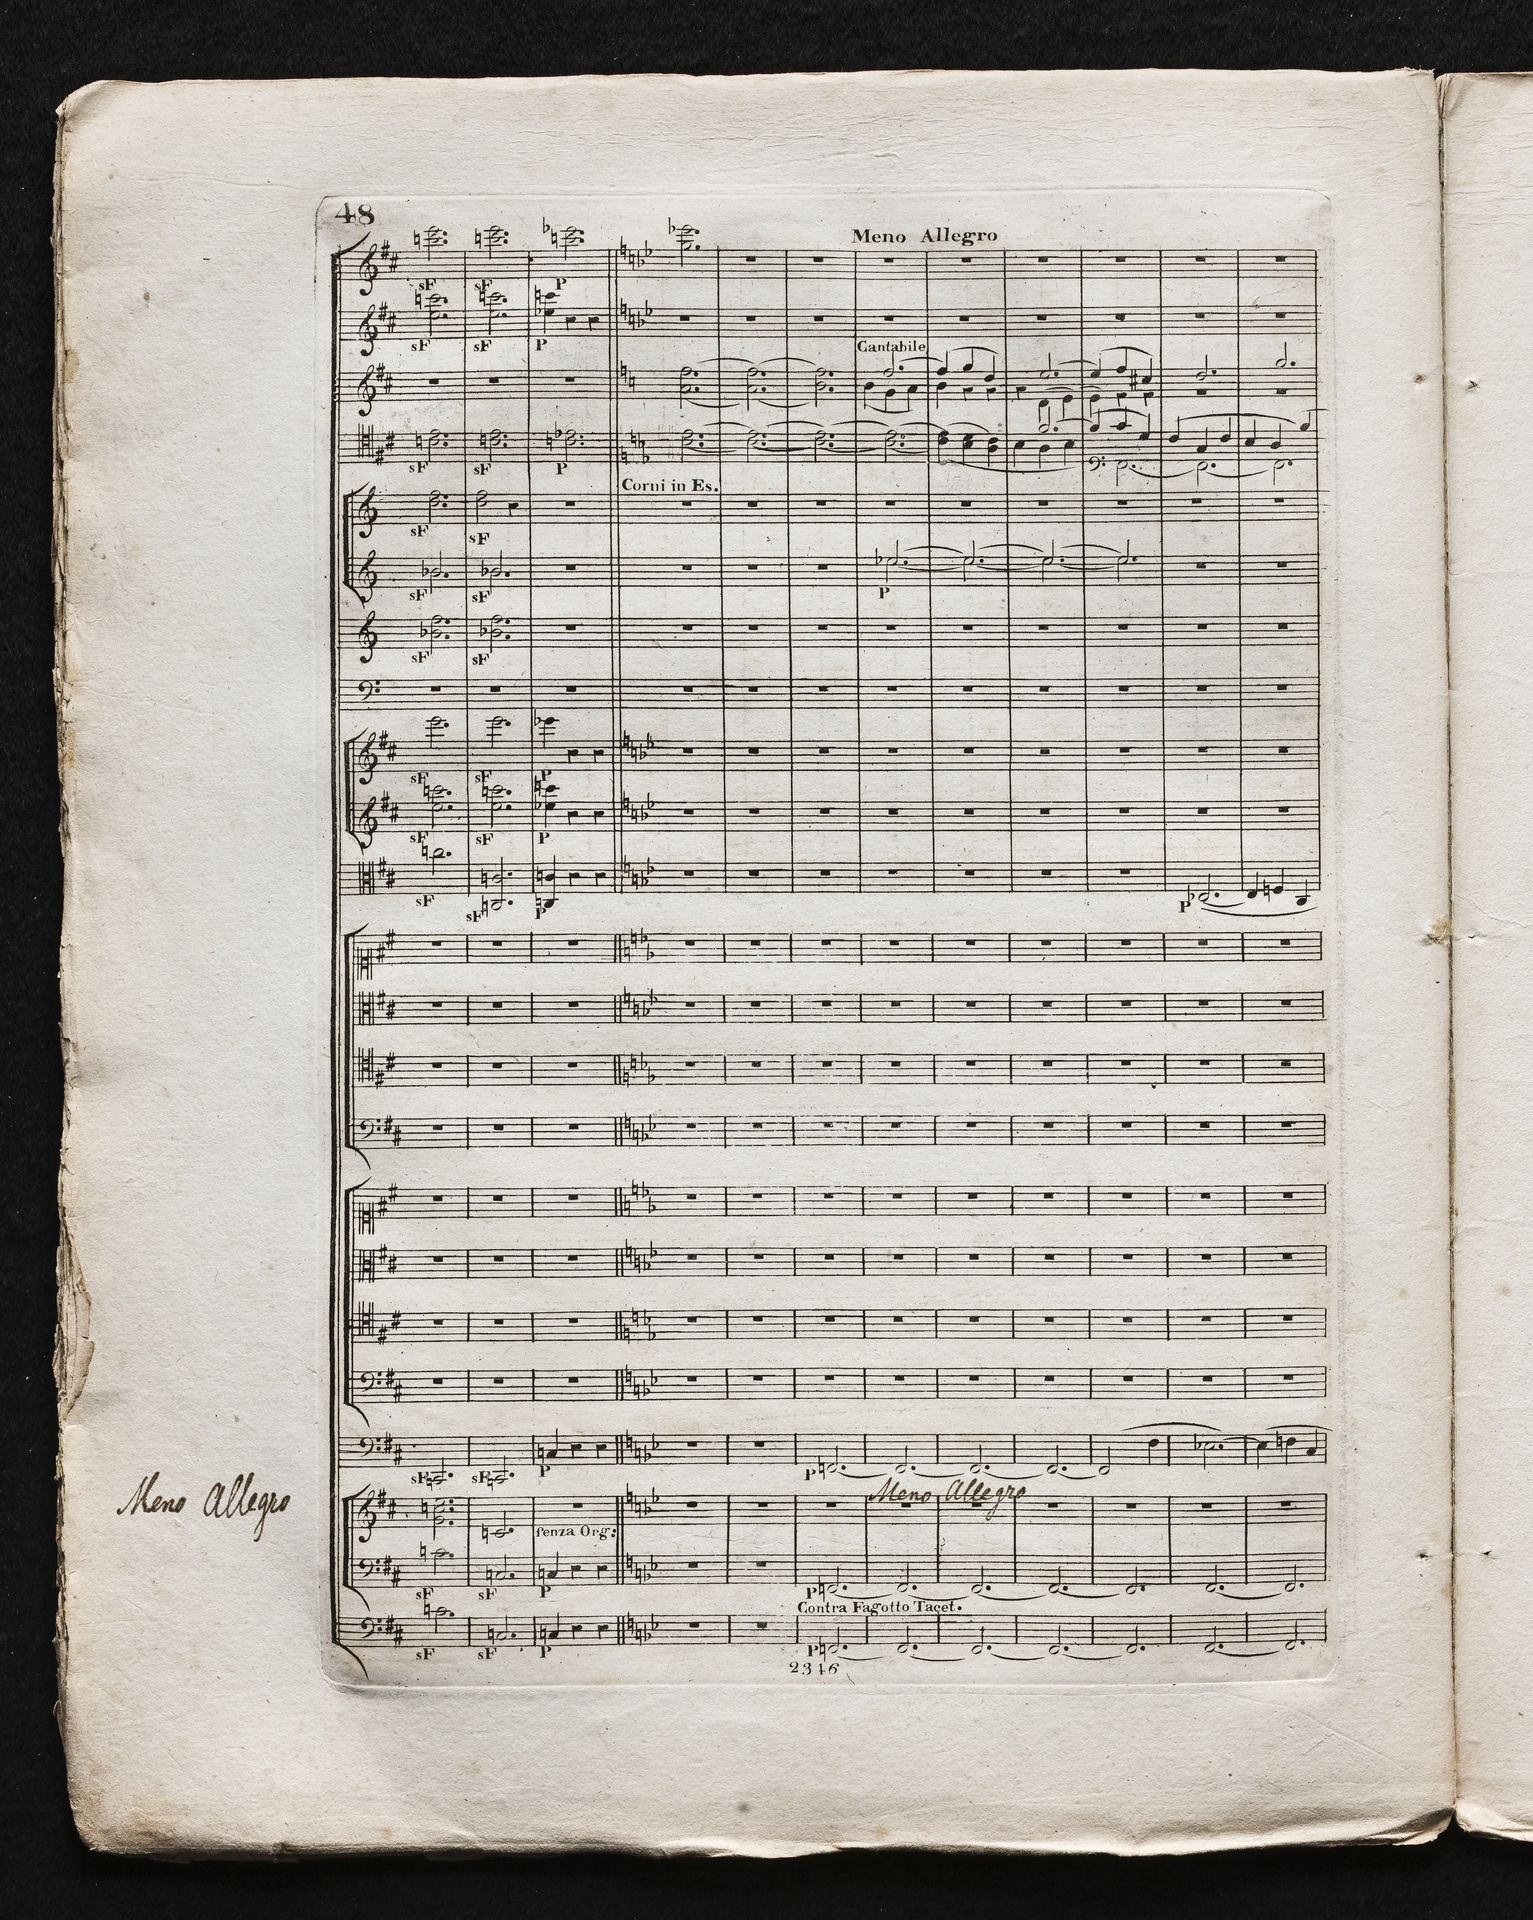 48
Meno Allegro
sF sF P
sF sF P
Cantabile
sF sF P
Corni in Es.
sF sF
sF sF P
sF sF
sF sF P
sF sF P
sF sF P
P
sF sF P P
Meno Allegro
Meno Allegro
senza Org:
sF sF P P
Contra Fagotto Tacet.
sF sF P P
2346